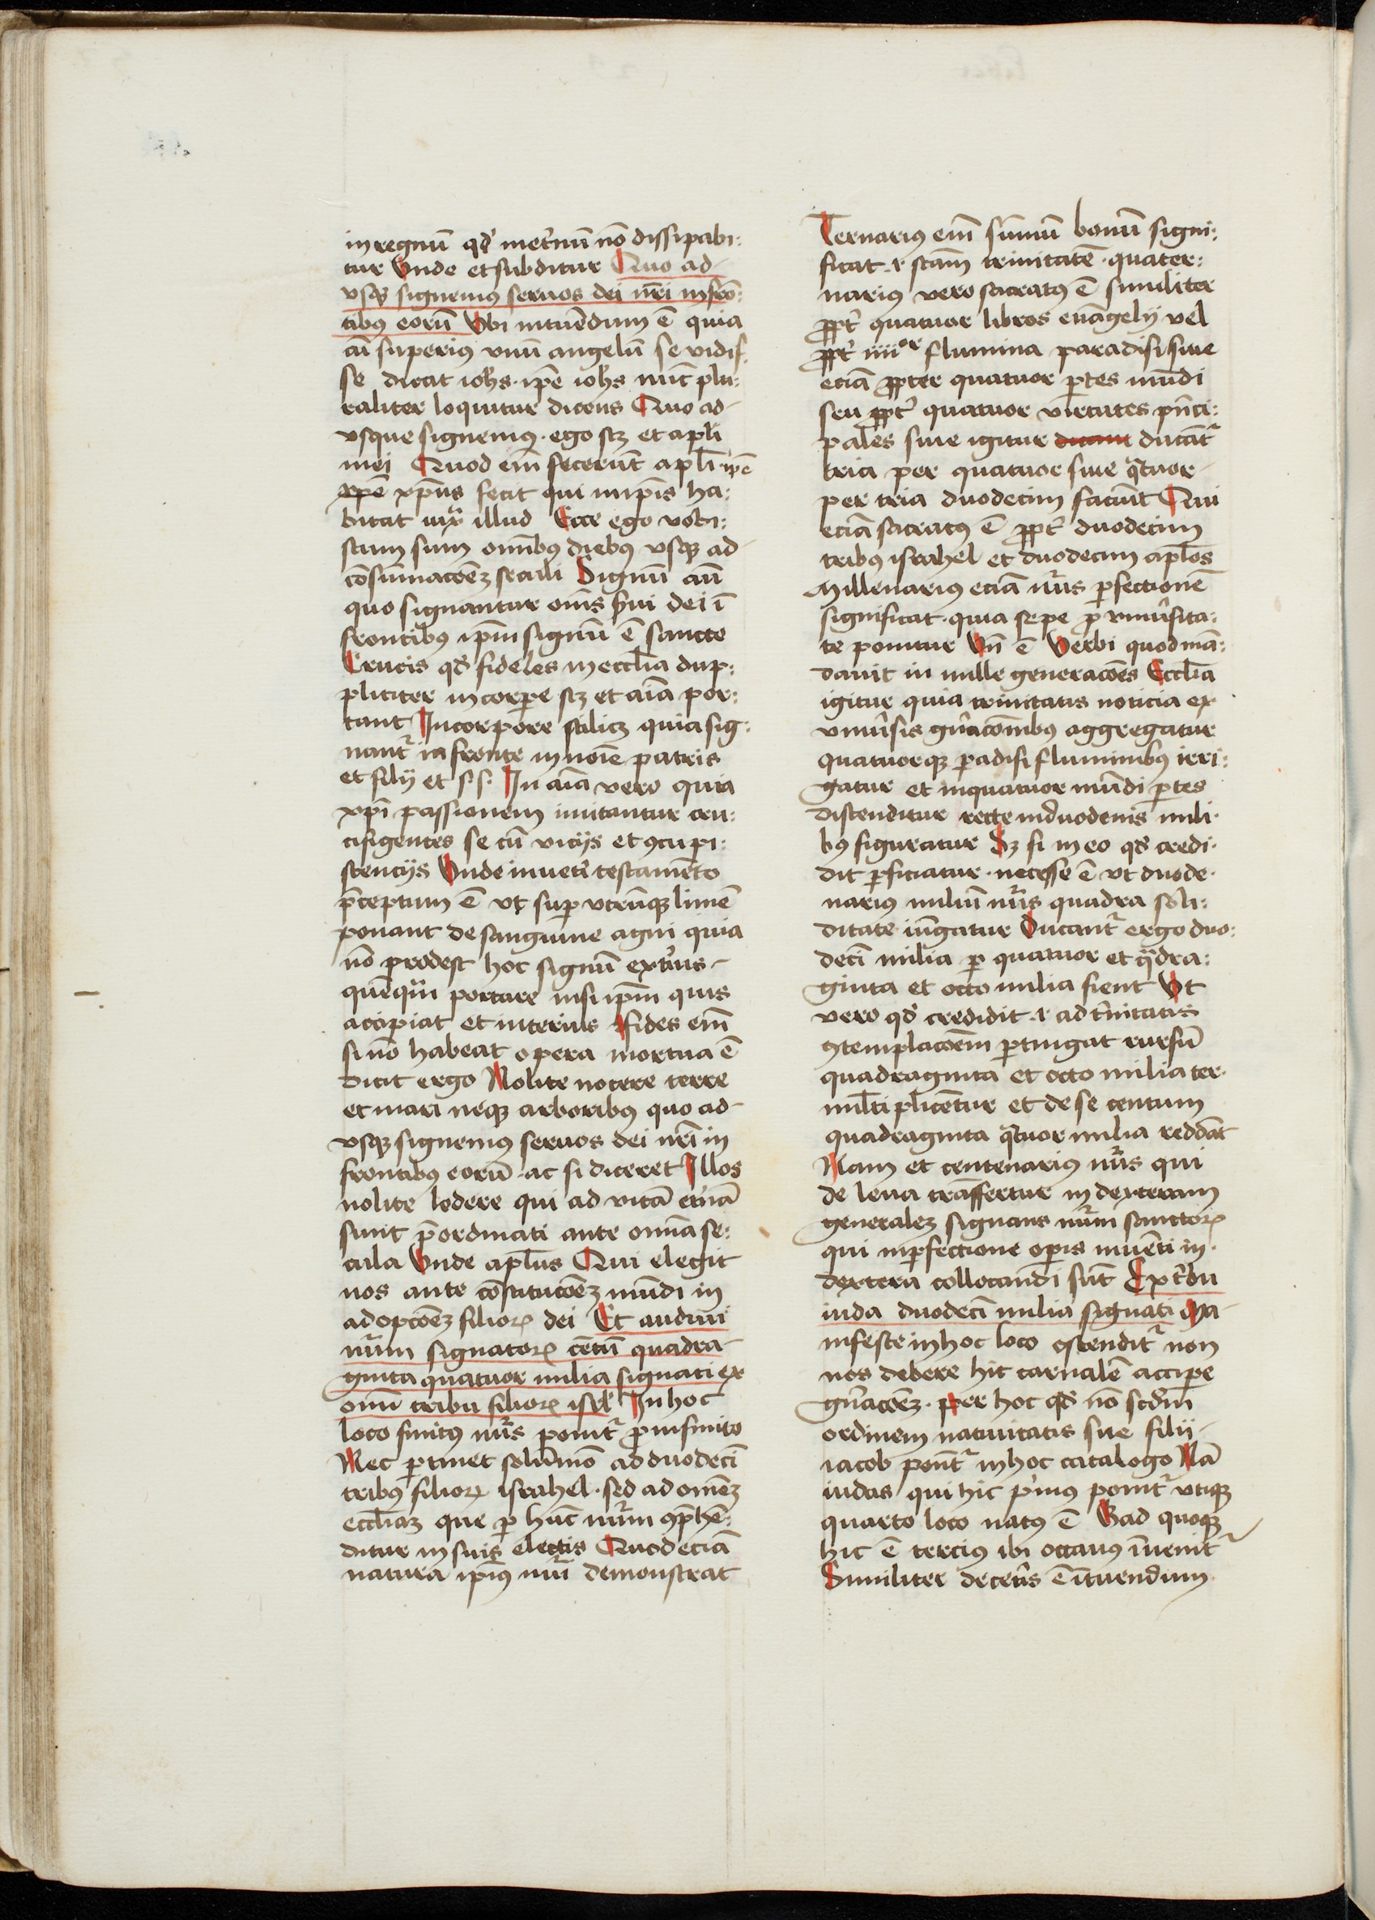 in regnū qđ inet̄nū nō dissipabi:
tur Vnde et subditur Quo ad-
vsq3 signemus seruos dei nr̄i in frō:
tibus eorū Vbi intuēdum ē quia
cū superius vnū angelū se vidis-
se dicat ioħs · ip̄e ioħs nūc plu:
raliter loquitur dicens Quo ad-
vsque signemus · ego scꝫ et apl̄i
mei Quod em̄ fecerūt apl̄i · ip̄e
xp̄us fecit qui in ip̄is ha:
bitat iux̄ illud Ecce ego vobi:
scum sum om̄ibus diebus vsqꝫ ad
cōsum̄acōeꝫ seculi Signū aūt
quo signantur om̄s s̄ui dei ī
frontibus ip̄m signū ē sancte
Crucis qđ fideles in eccl̄ia dup:
pliciter in corpore scꝫ et aīa por:
tant In corpore scilicꝫ quia sig:
nant̄ in fronte in noīe patris
et filij et s̄ s̄ In aīa vero quia
xp̄i passionem imitantur cru:
cifigentes se cū vicijs et ꝯcupi:
scencijs Vnde in vet̄i testamēto
p̄ceptum ē vt suꝑ vtrūqꝫ limē
ponant de sanguine agni quia
nō prodest hoc signū ext̄ius
quēq̄m portare nisi ip̄m quis
accipiat et interius Fides em̄
si nō habeat opera mortua ē
Dicit ergo Nolite nocere terre
et mari neqꝫ arboribus quo ad-
vsqꝫ signemus seruos dei nr̄i in
frontibus eorū · ac si diceret Illos
nolite ledere qui ad vitā et̄nā
sunt p̄ordinati ante omīa se:
cula Vnde apl̄us Qui elegit
nos ante cōstitucōeꝫ mūdi in
adopcōeꝫ filioꝝ dei Et audiui
nūm signatoꝝ cētū quadra-
ginta quatuor milia signati ex
omī tribu filioꝝ isrl̄ In hoc
loco finitus nūs ponit̄ pro infinito
Nec ꝑtinet solūmō ad duodecī
tribus filioꝝ israhel · sed ad om̄eꝫ
eccl̄iaꝫ que ꝑ hūc nūm ꝯp̄hē:
ditur in suis electis Quod eciā
natura ip̄ius nūi demonstrat
Ternarius em̄ sūmū bonū signi:
ficat · i · sc̄am trinitatē · quater:
narius vero sacratus ē similiter
ꝓpt̄ quatuor libros euāgelij vel
ꝓpt̄ iiiiᵒʳ flumina paradisi siue
eciā ꝓpter quatuor ꝑtes mūdi
seu ꝓpt̄ quatuor virtutes p̄nci:
pales siue igitur ducāt̄
tria per quatuor siue q̄tuor
per tria duodecim faciūt Qui
eciā sacratus ē ꝓpt̄ duodecim
tribus israhel et duodecim apl̄os
Millenarius eciā nūs ꝑfectionē
significat · quia sepe ꝓ vniūsita:
te ponitur Vn̄ ē Verbi quod mā:
dauit in mille generacōes Eccl̄ia
igitur quia trinitatis noticia ex
vniūsis gn̄acōnibus aggregatur
quatuorqꝫ ꝑadisi fluminibus irri:
gatur et in quatuor mūdi ꝑtes
distenditur recte in duodenis mili-
bꝰ figuratur Sꝫ si in eo qđ credi-
dit ꝑficiatur · necesse ē vt duode-
narius miliū nūs quadra soli:
ditate iūgatur Ducant̄ ergo duo:
decī milia ꝑ quatuor et q̄dra:
ginta et octo milia fient Vt
vero qđ credidit · i · ad t̄nitatis
ꝯtemplacōem ꝑtingat rursū
quadraginta et octo milia ter-
ml̄tiplicētur et de se centum
quadraginta q̄tuor milia reddāt
Nam et centenarius nūs qui
de leua trāsfertur in dexteram
generaleꝫ signans nūm sanctoꝝ
qui in ꝑfectione oꝑis inuēti in
dextera collocandi sūt Ex t̄bu
iuda duodecī milia signati Ma-
nifeste in hoc loco ostendit̄ non
nos debere hic carnalē accipe
gn̄acōeꝫ · Per hoc qđ nō scđm
ordinem natiuitatis sue filij
iacob ponūt̄ in hoc catalogo Nā
iudas qui hic p̄mus ponit̄ vtiqꝫ
quarto loco natus ē Gad quoqꝫ
hic ē tercius ibi octauus īuenit̄
Similiter de cet̄is ē ītuendum